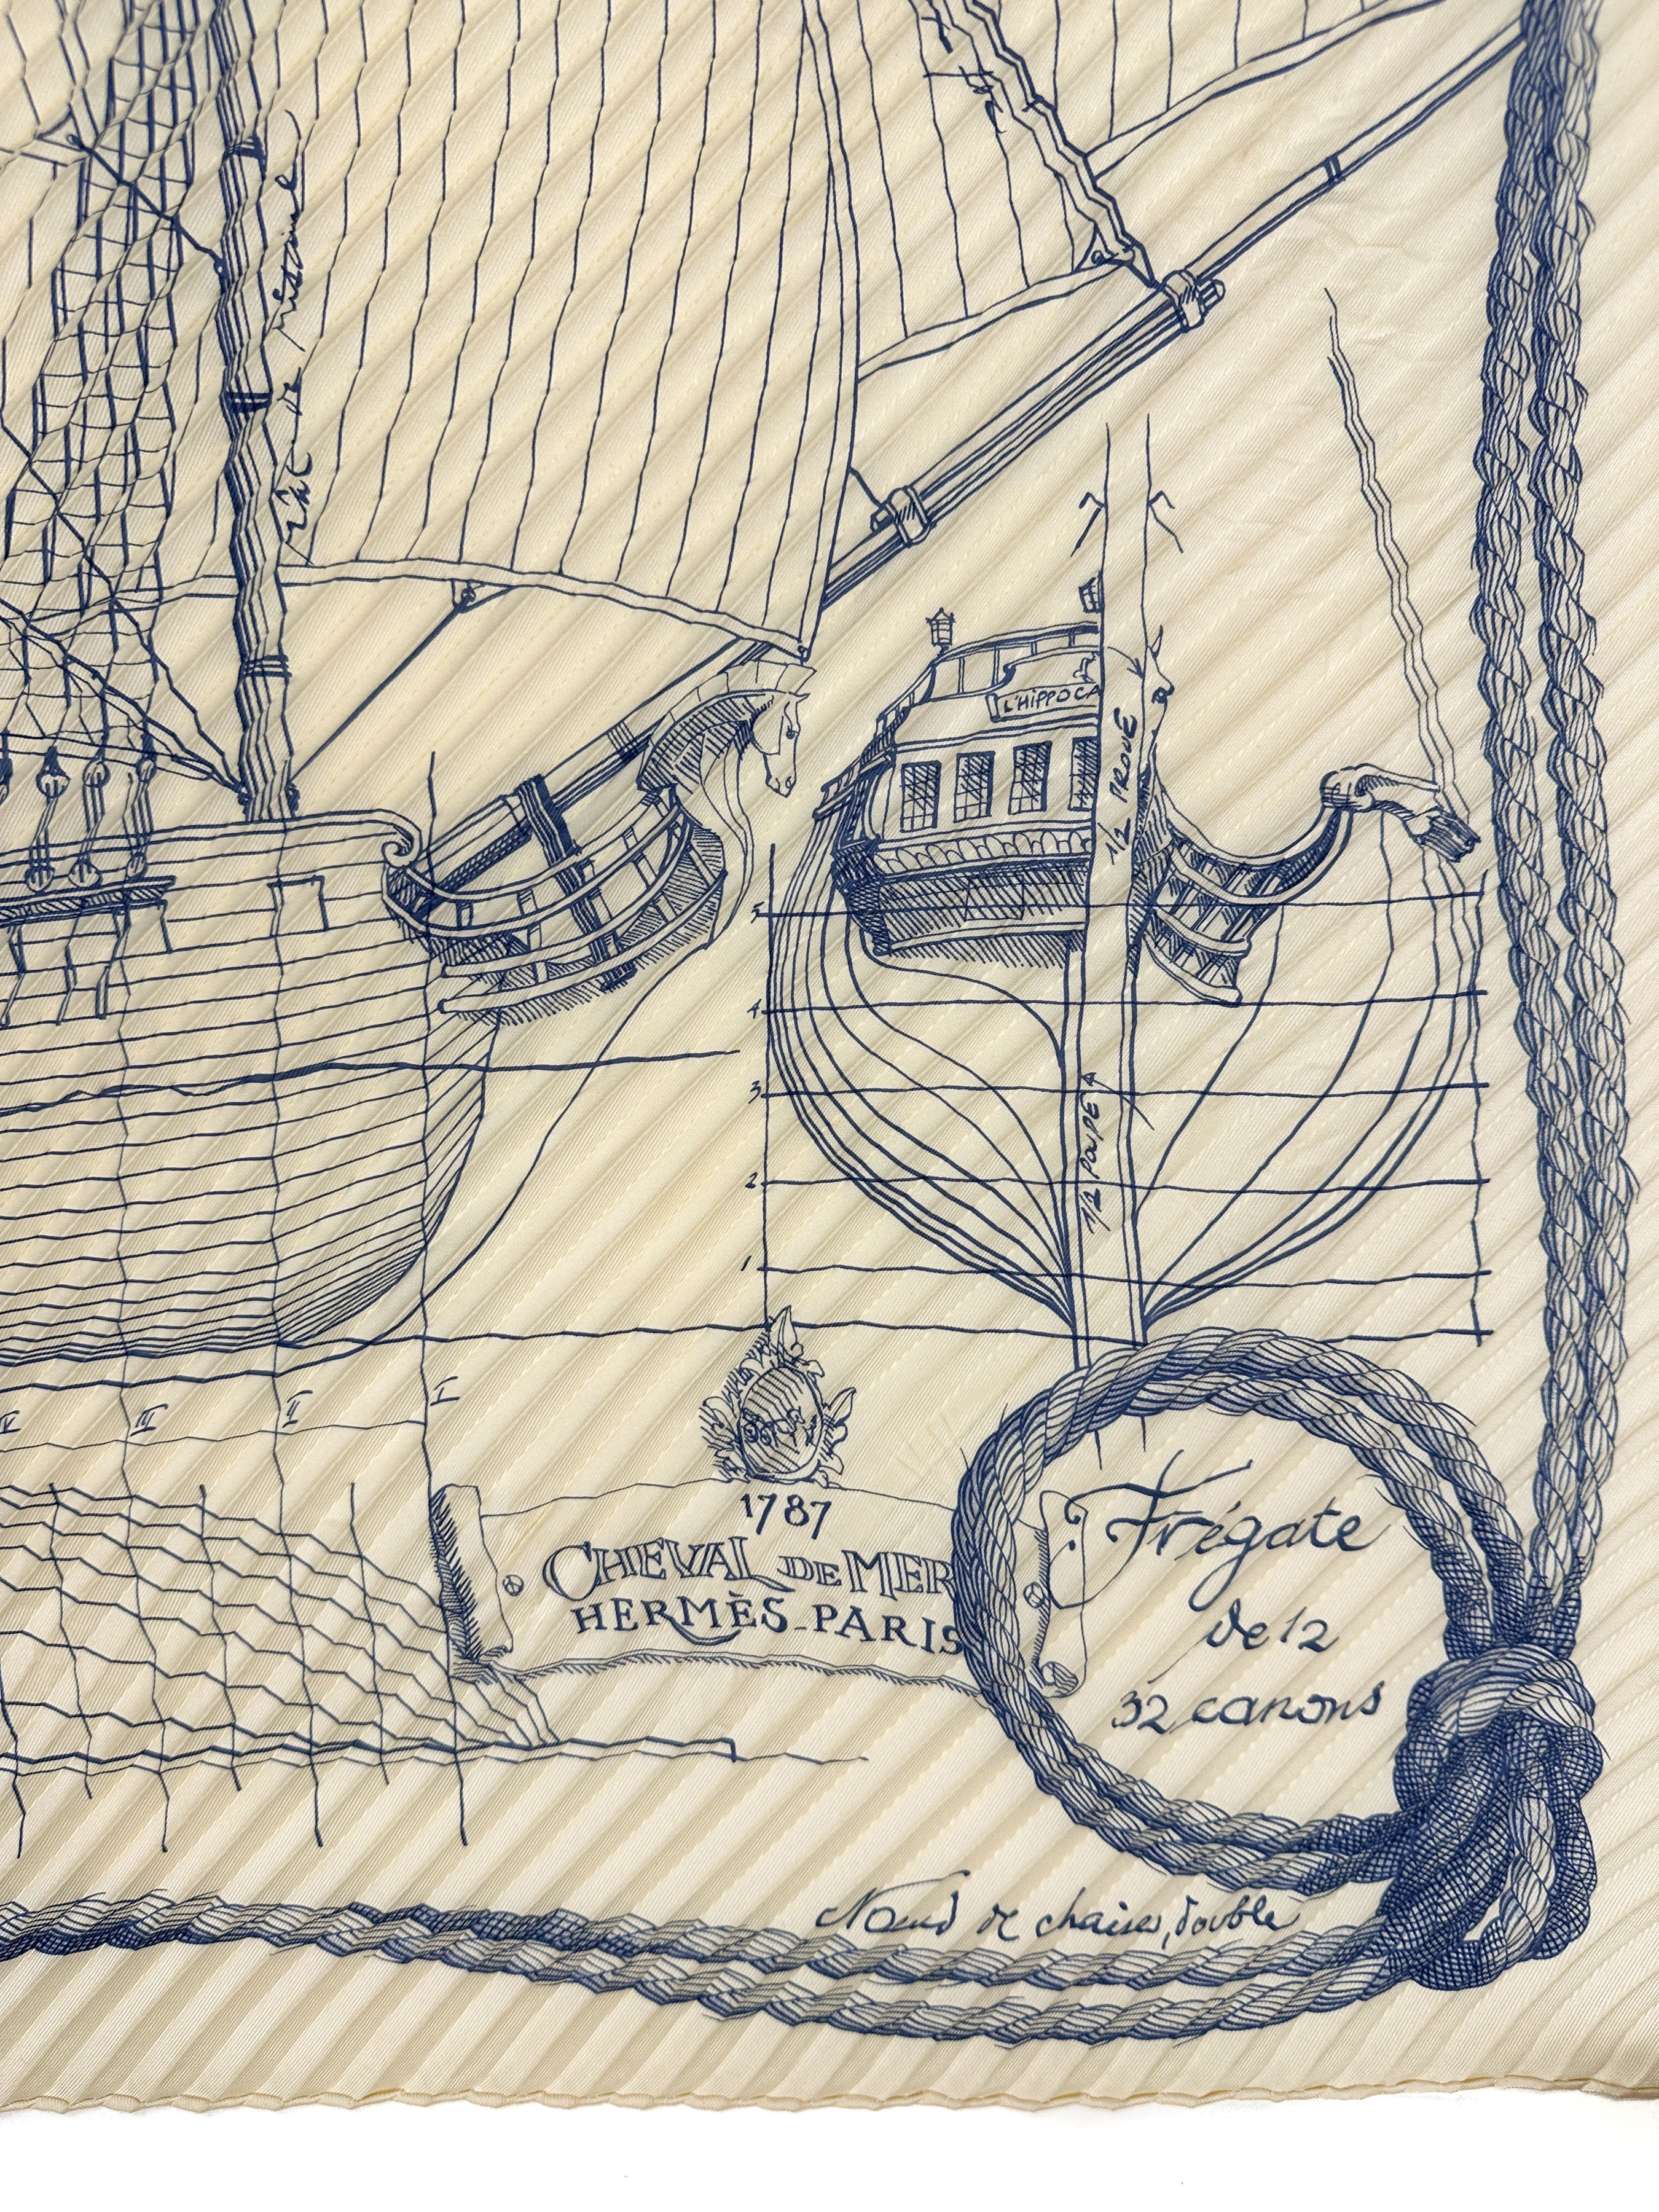 Mât de misaine
L'HIPPOCA
1/2 PROUE
5
4
3
1/2 POUPE
2
1
I
II
III
1787
CHEVAL DE MER
HERMÈS-PARIS
Frégate
de 12
32 canons
Nœud de chaises, double